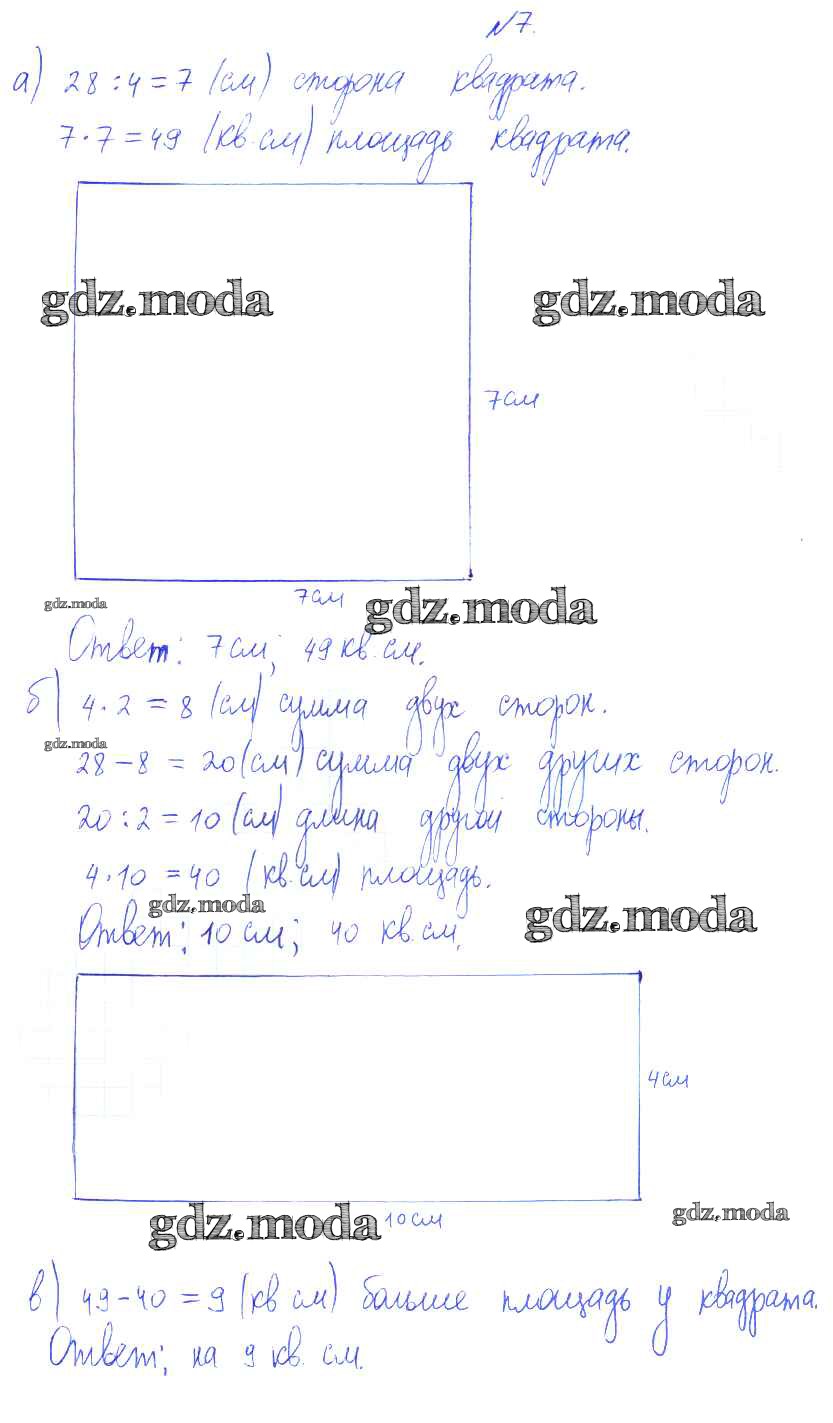 №7.
а) 28:4=7 (см) сторона квадрата.
7·7=49 (кв.см) площадь квадрата.
gdz.moda gdz.moda
7см
7см
gdz.moda gdz.moda
Ответ: 7см; 49 кв.см.
б) 4·2=8 (см) сумма двух сторон.
gdz.moda
28-8=20(см) сумма двух других сторон.
20:2=10 (см) длина другой стороны.
4·10=40 (кв.см) площадь.
gdz.moda gdz.moda
Ответ: 10см; 40 кв.см.
4см
10см
gdz.moda gdz.moda
в) 49-40=9 (кв см) больше площадь у квадрата.
Ответ: на 9 кв. см.